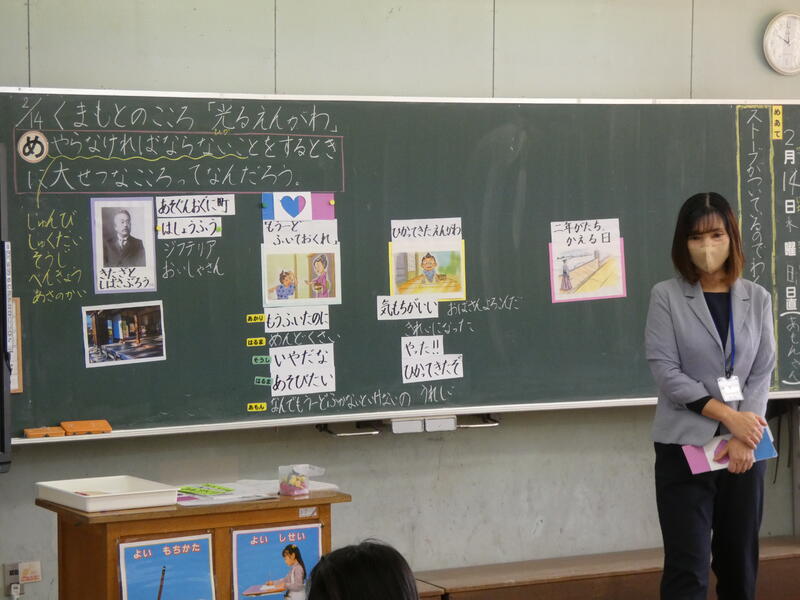 2/14 くまもとのこころ「光るえんがわ」
ひか
め やらなければならないことをするとき
に、大せつなこころってなんだろう。
じゅんび
しゅくだい
そうじ
べんきょう
あさのかい
きたざと
しばさぶろう
あそぐんおぐに町
はしょうふう
ジフテリア
おいしゃさん
もう一ど
ふいておくれ。
あかり
もうふいたのに
はるま
めんどくさい
そうし
いやだな
はるま
あそびたい
あもん
なんでもう一どふかないといけないの
ひかってきたえんがわ
気もちがいい
おばさんよろこんだ
きれいになった
やった!!
ひかってきたぞ
うれしい
二年がたち、
かえる日
めあて
ストーブがついているのでわ
2月14日 木曜日 日直(あもんさん)
よい もちかた
よい しせい